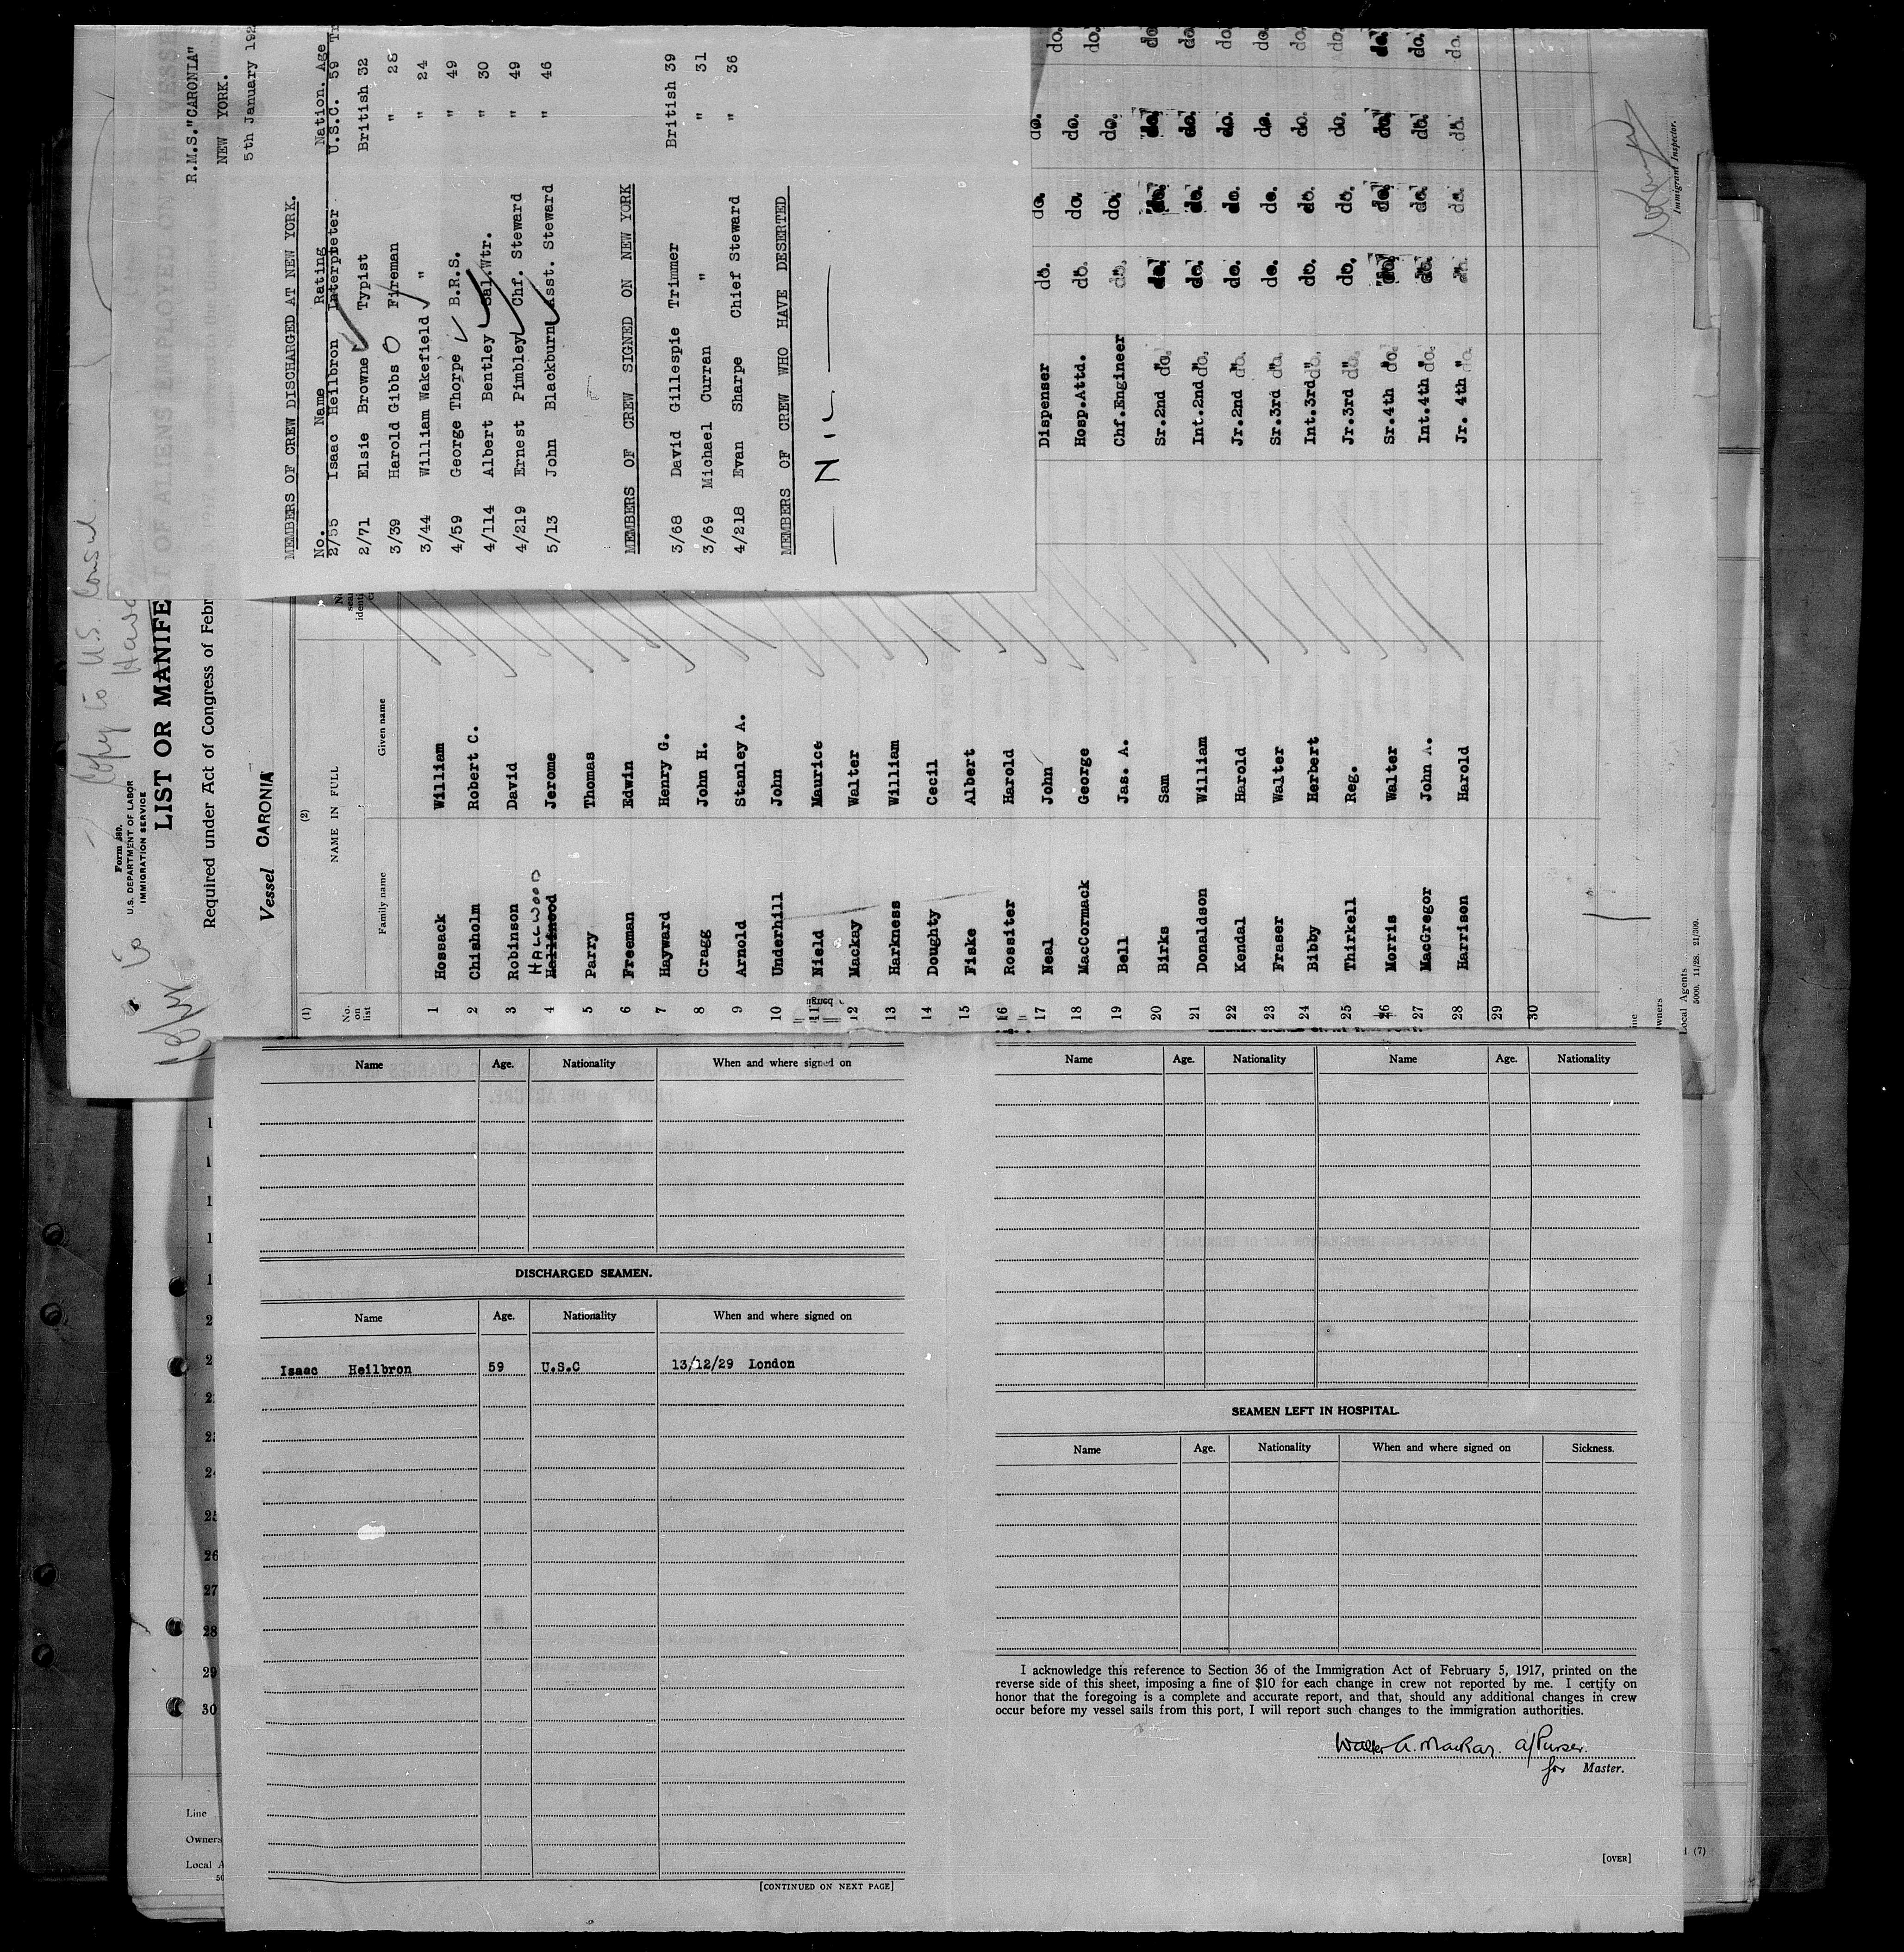 R.M.S."CARONIA"
NEW YORK.
5th January 192
MEMBERS OF CREW DISCHARGED AT NEW YORK.
No. Name Rating Nation. Age
2/55 Isaac Heilbron Interpreter U.S.C. 59
2/71 Elsie Browne Typist British 32
3/39 Harold Gibbs O Fireman " 28
3/44 William Wakefield " " 24
4/59 George Thorpe B.R.S. " 49
4/114 Albert Bentley Sal.Wtr. " 30
4/219 Ernest Pimbley Chf. Steward " 49
5/13 John Blackburn Asst. Steward " 46
MEMBERS OF CREW SIGNED ON NEW YORK
3/68 David Gillespie Trimmer British 39
3/69 Michael Curran " " 31
4/218 Evan Sharpe Chief Steward " 36
MEMBERS OF CREW WHO HAVE DESERTED
— NIL —
Copy to U.S. Consul.
Form 680.
U.S. DEPARTMENT OF LABOR
IMMIGRATION SERVICE
LIST OR MANIFE
Required under Act of Congress of Febr
Vessel CARONIA
(1) (2)
No. on list
NAME IN FULL
Family name Given name
1 Hossack William
2 Chisholm Robert C.
3 Robinson David
HALLWOOD
4 Hallinood Jerome
5 Parry Thomas
6 Freeman Edwin
7 Hayward Henry G.
8 Cragg John H.
9 Arnold Stanley A.
10 Underhill John
11 Nield Maurice
12 Mackay Walter
13 Harkness William
14 Doughty Cecil
15 Fiske Albert
16 Rossiter Harold
17 Neal John Dispenser do. do. do.
18 MacCormack George Hosp.Attd. do. do. do. do.
19 Bell Jas. A. Chf.Engineer do. do. do. do.
20 Birks Sam Sr.2nd do. do. do. do. do.
21 Donaldson William Int.2nd do. do. do. do. do.
22 Kendal Harold Jr.2nd do. do. do. do. do.
23 Fraser Walter Sr.3rd do. do. do. do. do.
24 Bibby Herbert Int.3rd do. do. do. do. do.
25 Thirkell Reg. Jr.3rd do. do. do. do. do.
26 Morris Walter Sr.4th do. do. do. do. do.
27 MacGregor John A. Int.4th do. do. do. do. do.
28 Harrison Harold Jr. 4th do. do. do. do. do.
29
30
Immigrant Inspector.
Local Agents
5000. 11/28. 21/309.
Name Age. Nationality When and where signed on
DISCHARGED SEAMEN.
Name Age. Nationality When and where signed on
Isaac Heilbron 59 U.S.C 13/12/29 London
[CONTINUED ON NEXT PAGE]
Name Age. Nationality Name Age. Nationality
SEAMEN LEFT IN HOSPITAL.
Name Age. Nationality When and where signed on Sickness.
I acknowledge this reference to Section 36 of the Immigration Act of February 5, 1917, printed on the
reverse side of this sheet, imposing a fine of $10 for each change in crew not reported by me. I certify on
honor that the foregoing is a complete and accurate report, and that, should any additional changes in crew
occur before my vessel sails from this port, I will report such changes to the immigration authorities.
Walter A. Mackay. a/Purser.
for Master.
[OVER]
26
27
28
29
30
Line
Owners
Local A